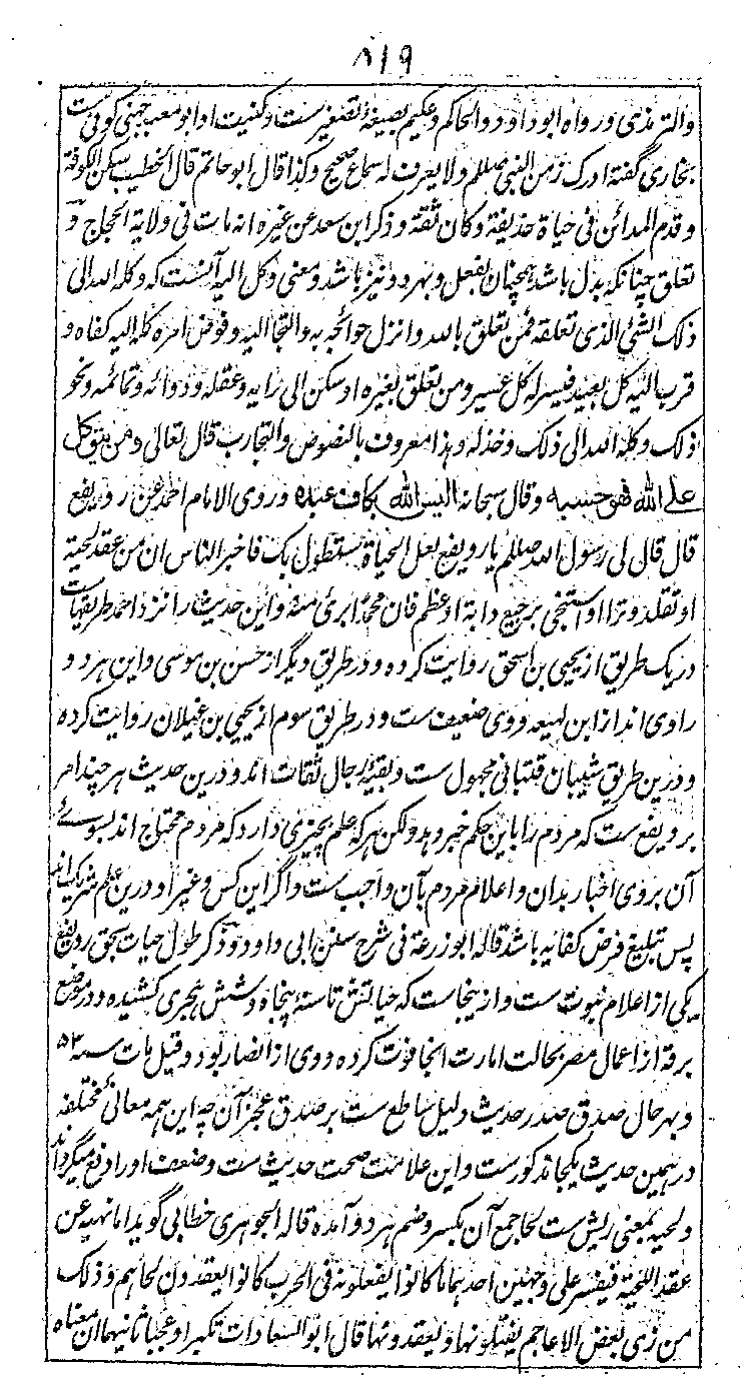 ۸۱۹
والترمذی و رواه ابو داود والحاکم وعکیم بصیغهٔ تصغیر ست و کنیت او ابو معبد جهنی کوفی ست
بخاری گفته ادرک زمن النبی صللم ولا یعرف له سماع صحیح و کذا قال ابو حاتم قال الخطیب سکن الکوفة
وقدم المدائن فی حیاة حذیفة وکان ثقة وذکر ابن سعد عن غیره انه مات فی ولایة الحجاج و
تعلق چنانکه بدل باشد همچنان بفعل و بهر دو نیز باشد و معنی وکل الیه آنست که وکله الله الی
ذلک الشئ الذی تعلقه فمن تعلق بالله وانزل حوائجه به والتجا الیه وفوض امره کله الیه کفاه و
قرب الیه کل بعید فیسر له کل عسیر ومن تعلق بغیره او سکن الی رایه وعقله ودوائه وتمائمه ونحو
ذلک وکله الله الی ذلک وخذله وهذا معروف بالنصوص والتجارب قال تعالی ومن یتوکل
علی الله فهو حسبه وقال سبحانه الیس الله بکاف عبده وروی الامام احمد عن رویفع
قال قال لی رسول الله صللم یا رویفع لعل الحیاة ستطول بک فاخبر الناس ان من عقد لحیة
او تقلد وترا او استنجی برجیع دابة او عظم فان محمدا بری منه و این حدیث را نزد احمد طریقهاست
در یک طریق از یحیی بن اسحق روایت کرده و در طریق دیگر از حسن بن موسی و این هر دو
راوی اند از ابن لهیعه و وی ضعیف ست و در طریق سوم از یحیی بن غیلان روایت کرده
و درین طریق شیبان قتبانی مجهول ست و بقیهٔ رجال ثقات اند و درین حدیث هر چند امر
برویفع ست که مردم را باین حکم خبر دهد ولکن هر که علم بچیزی دارد که مردم محتاج اند بسوئے
آن بروی اخبار بدان و اعلام مردم بآن واجب ست و اگر این کس و غیر او درین علم شریک اند
پس تبلیغ فرض کفایه باشد قاله ابو زرعة فی شرح سنن ابی داود و ذکر طول حیات بحق رویفع
یکی از اعلام نبوت ست و از ینجاست که حیاتش تا سنهٔ پنجاه و شش هجری کشیده و در موضع
برقة از اعمال مصر بحالت امارت آنجا فوت کرده و وی از انصار بود و قیل مات سنه ۵۳
و بهر حال صدق صدر حدیث دلیل ساطع ست بر صدق عجز آن چه این همه معانئ مختلفه
در همین حدیث یکجا مذکور ست و این علامت صحت حدیث ست و ضعف او را دفع میگرداند
و لحیه بمعنی ریش ست لحا جمع آن بکسر و ضم هر دو آمده قاله الجوهری خطابی گوید اما نهیه عن
عقد اللحیة فیفسر علی وجهین احدهما ما کانوا یفعلونه فی الحرب کانوا یعقدون لحاهم وذلک
من زی بعض الاعاجم یفتلونها ویعقدونها قال ابو السعادات تکبرا وعجبا ثانیهما ان معناه